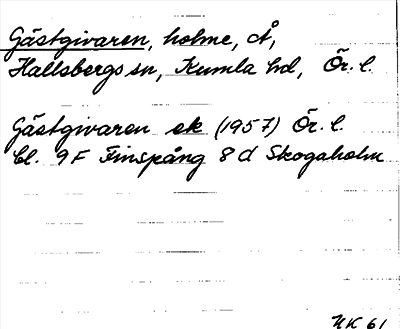 Gästgivaren, holme, Å,
Hallsbergs sn, Kumla hd, Ör. l.
Gästgivaren ek (1957) Ör. l.
bl. 9F Finspång 8d Skogaholm
NK 61